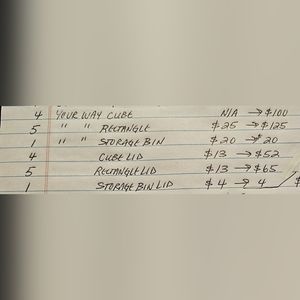 4 YOUR WAY CUBE N/A → $100
5 " " RECTANGLE $25 → $125
1 " " STORAGE BIN $20 → $20
4 CUBE LID $13 → $52
5 RECTANGLE LID $13 → $65
1 STORAGE BIN LID $4 → 4 $